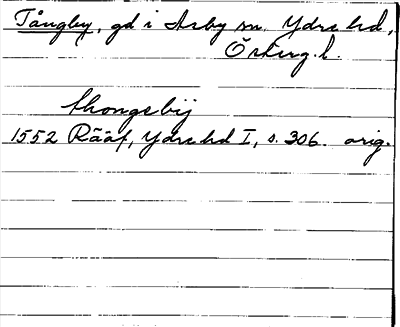 Tångby, gd i Asby sn. Ydre hd,
Österg. l.
thongebij
1552 Rääf, Ydre hd I, s. 306. orig.